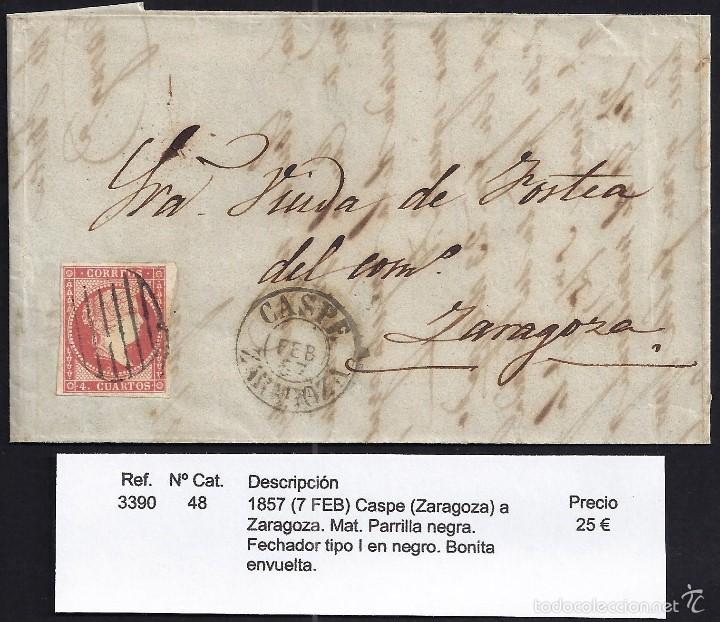 Sra. Viuda de Fortea
del comº.
Zaragoza.
CORREOS
4. CUARTOS
CASPE
FEB
57
ZARAGOZA
Ref. Nº Cat. Descripción
3390 48 1857 (7 FEB) Caspe (Zaragoza) a Precio
Zaragoza. Mat. Parrilla negra. 25 €
Fechador tipo I en negro. Bonita
envuelta.
todocoleccion.net